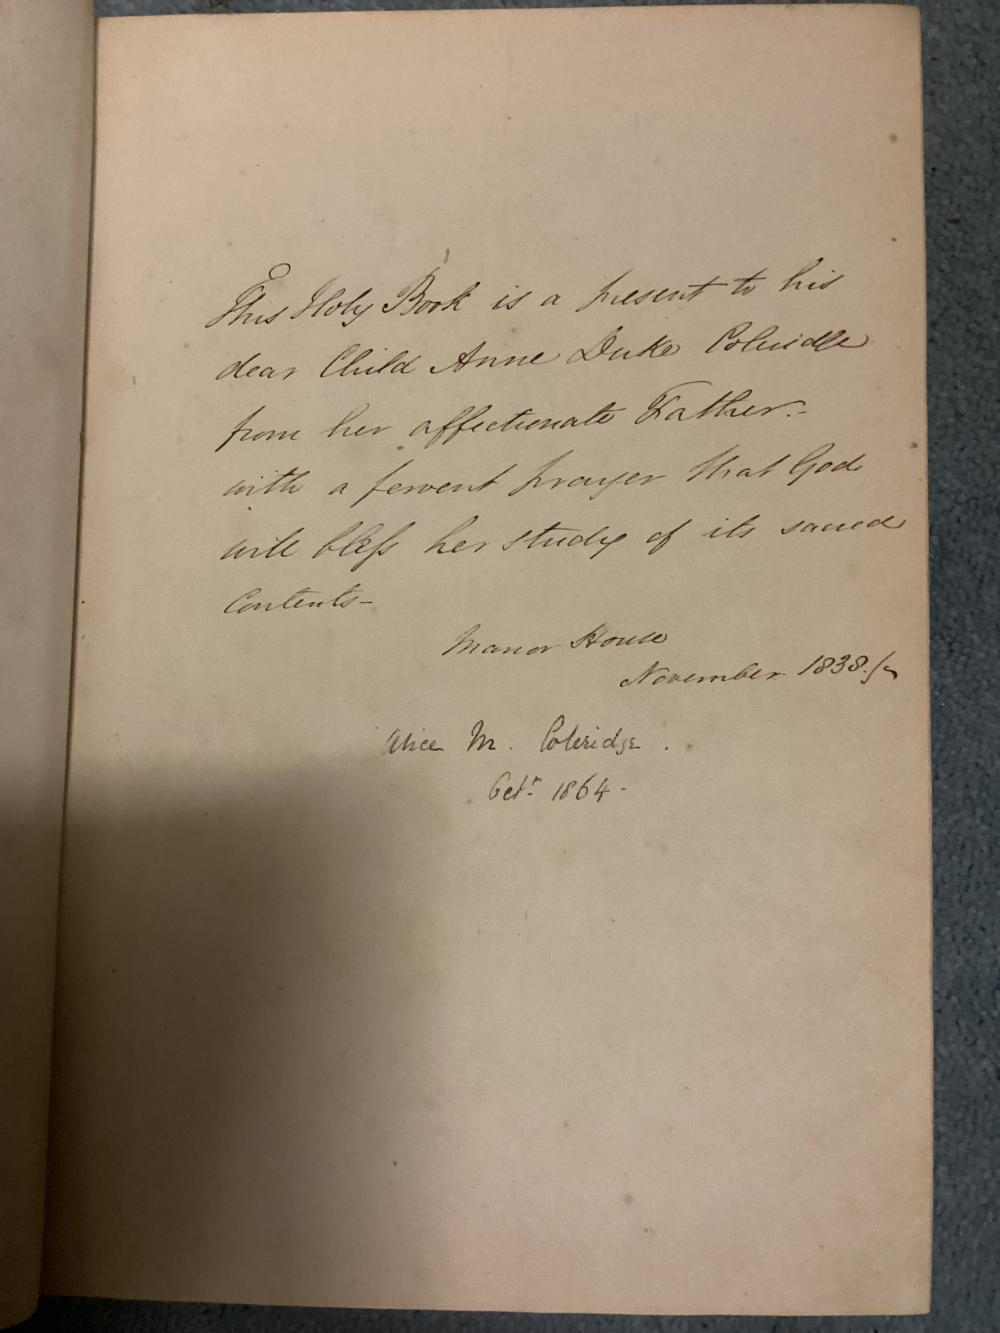 This Holy Book is a present to his
dear Child Anne Duke Coleridge
from her affectionate Father.-
with a fervent prayer that God
will bleſs her study of its sacred
Contents-
Manor House
November 1838.
Alice M. Coleridge.
Octr. 1864-